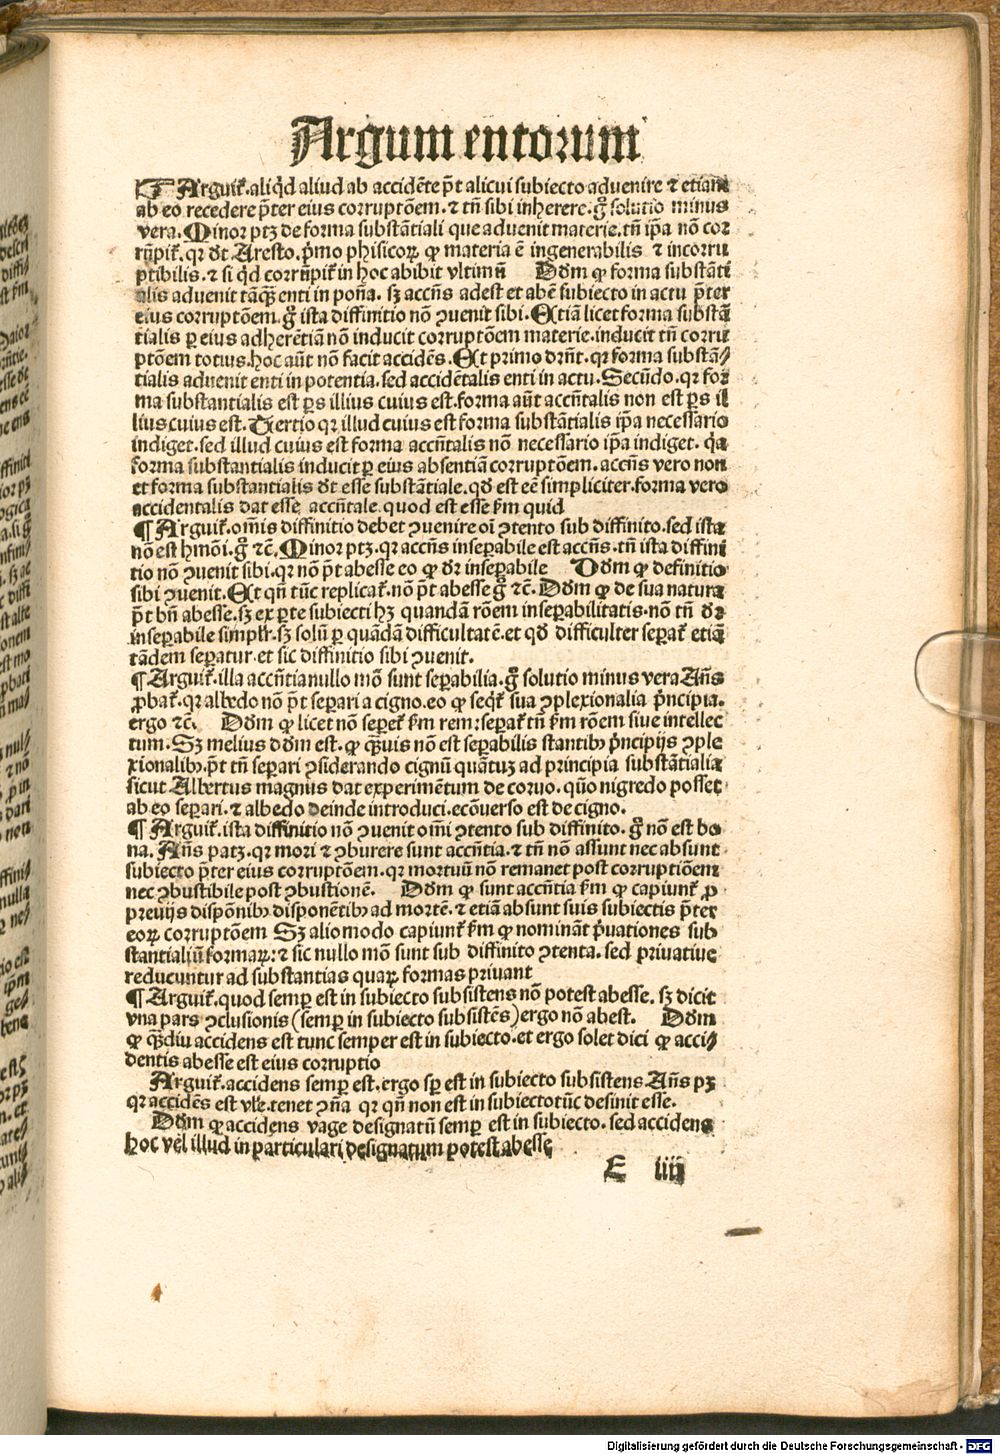 Argum entorum
¶ Arguit᷑. aliq̃d aliud ab accidẽte põt alicui subiecto aduenire ⁊ etiam
ab eo recedere p̃ter eius corruptõem. ⁊ tñ sibi inherere. g̊ solutio minus
vera. Minor ptꝫ de forma substãtiali que aduenit materie. tñ ip̃a nõ cor
rũpit᷑. qꝛ dt Aresto. p̃mo phisicoꝝ ꝙ materia ẽ ingenerabilis ⁊ incorru
ptibilis. ⁊ si q̃d corrũpit᷑ in hoc abibit vltimũ Dõm ꝙ forma substãti
alis aduenit tãq̃ꝫ enti in põna. sꝫ accñs adest et abẽ subiecto in actu p̃ter
eius corruptõem. g̊ ista diffinitio nõ ꝯuenit sibi. Etiã licet forma substã
tialis ꝑ eius adherẽtiã nõ inducit corruptõem materie. inducit tñ corru
ptõem totius. hoc aũt nõ facit accidẽs. Et primo drñt. qꝛ forma substã⸗
tialis aduenit enti in potentia. sed accidẽtalis enti in actu. Secũdo. qꝛ for
ma substantialis est ꝑs illius cuius est. forma aũt accñtalis non est ꝑs il
lius cuius est. Tertio qꝛ illud cuius est forma substãtialis ip̃a necessario
indiget. sed illud cuius est forma accñtalis nõ necessario ip̃a indiget. q̃a
forma substantialis inducit ꝑ eius absentiã corruptõem. accñs vero non
et forma substantialis dt esse substãtiale. qd̃ est eẽ simpliciter. forma vero
accidentalis dat esse accñtale. quod est esse ẜm quid
¶ Arguit᷑. om̃is diffinitio debet ꝯuenire oĩ ꝯtento sub diffinito. sed ista
nõ est hmõi. g̊ ⁊c̃. Minor ptꝫ. qꝛ accñs inseꝑabile est accñs. tñ ista diffini
tio nõ ꝯuenit sibi. qꝛ nõ põt abesse eo ꝙ dr̃ inseꝑabile Dõm ꝙ definitio
sibi ꝯuenit. Et qñ tũc replicat᷑. nõ põt abesse g̊ ⁊c̃. Dõm ꝙ de sua natura
põt bñ abesse. sꝫ ex ꝑte subiecti hꝫ quandã rõem inseꝑabilitatis. nõ tñ dr̃
inseꝑabile simplr̃. sꝫ solũ ꝑ quãdã difficultatẽ. et qd̃ difficulter seꝑat᷑ etiã
tãdem seꝑatur. et sic diffinitio sibi ꝯuenit.
¶ Arguit᷑. illa accñtia nullo mõ sunt seꝑabilia. g̊ solutio minus vera Añs
ꝓbat᷑. qꝛ albedo nõ põt seꝑari a cigno. eo ꝙ seqt᷑ sua ꝯplexionalia p̃ncipia.
ergo ⁊c̃. Dõm ꝙ licet nõ seꝑet᷑ ẜm rem: seꝑat᷑ tñ ẜm rõem siue intellec
tum. Sꝫ melius dõm est. ꝙ q̃ꝫuis nõ est seꝑabilis stantibꝰ p̃ncipijs ꝯple
xionalibꝰ. põt tñ seꝑari ꝯsiderando cignũ quãtuꝫ ad principia substãtialia
sicut Albertus magnus dat experimẽtum de coruo. quõ nigredo posset
ab eo seꝑari. ⁊ albedo deinde introduci. ecõuerso est de cigno.
¶ Arguit᷑. ista diffinitio nõ ꝯuenit om̃i ꝯtento sub diffinito. g̊ nõ est bo
na. Añs patꝫ. qꝛ mori ⁊ ꝯburere sunt accñtia. ⁊ tñ nõ assunt nec absunt
subiecto p̃ter eius corruptõem. qꝛ mortuũ nõ remanet post corruptiõem
nec ꝯbustibile post ꝯbustionẽ. Dõm ꝙ sunt accñtia ẜm ꝙ capiunt᷑ ꝓ
preuijs dispõnibꝰ disponẽtibꝰ ad mortẽ. ⁊ etiã absunt suis subiectis p̃ter
eoꝝ corruptõem Sꝫ alio modo capiunt᷑ ẜm ꝙ nominãt p̃uationes sub
stantialiũ formaꝝ: ⁊ sic nullo mõ sunt sub diffinito ꝯtenta. sed priuatiue
reducuntur ad substantias quaꝝ formas priuant
¶ Arguit᷑. quod semꝑ est in subiecto subsistens nõ potest abesse. sꝫ dicit
vna pars ꝯclusionis (semꝑ in subiecto subsistẽs) ergo nõ abest. Dõm
ꝙ q̃ꝫdiu accidens est tunc semper est in subiecto. et ergo solet dici ꝙ acci⸗
dentis abesse est eius corruptio
Arguit᷑. accidens semꝑ est. ergo sꝑ est in subiecto subsistens Añs pꝫ
qꝛ accidẽs est vle. tenet ꝯña qꝛ qñ non est in subiecto tũc desinit esse.
Dõm ꝙ accidens vage designatũ semꝑ est in subiecto. sed accidens
hoc vel illud in particulari designatum potest abesse
E iiij
Digitalisierung gefördert durch die Deutsche Forschungsgemeinschaft - DFG